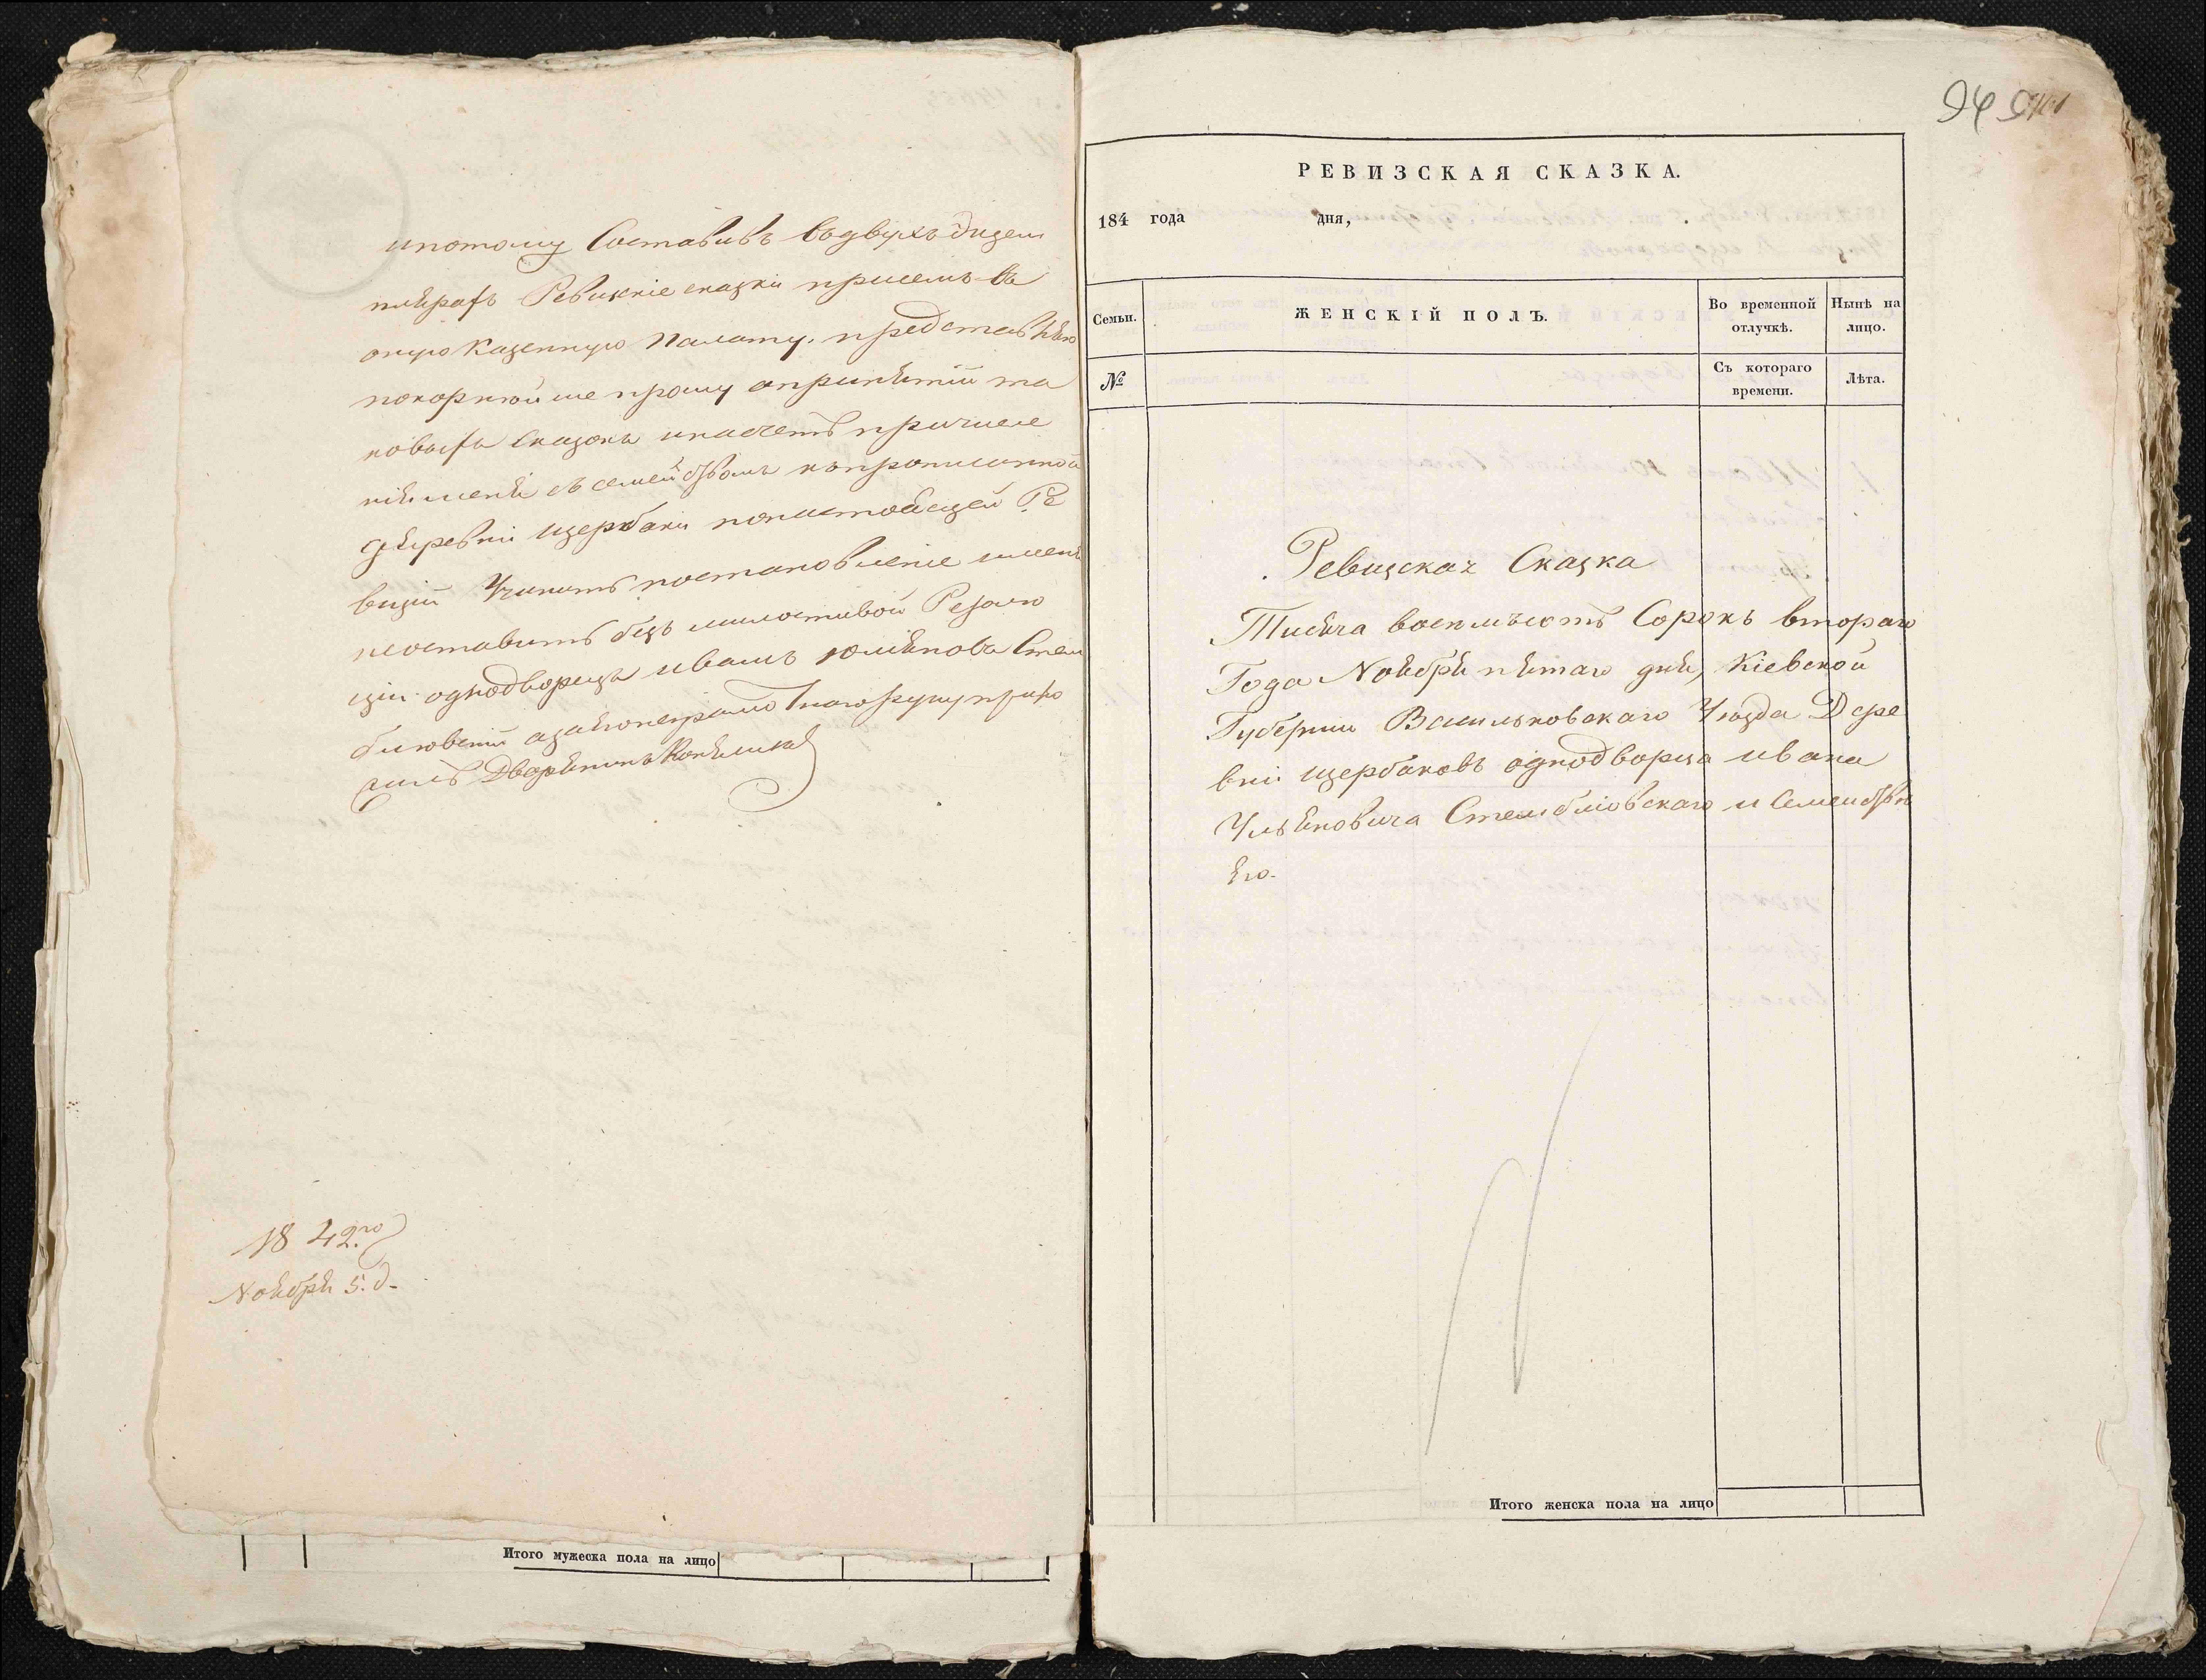 ипотому Составивъ въдвухъ Экзем
плѣрахъ Ревизкіе сказки присемъ въ
оную Казенную Палату. представлѣю
покорнѣйше прошу опринѣтіи та
ковыхъ Сказокъ инасчетъ причисле
ніѣ менѣ съ семействомъ къпрописанной
дѣревни Щербаки понастоѣщей Ре
визіи Учинить постановленіе именѣ
неоставить безъ милостивой Резолю
ціи однодворецъ иванъ юлѣновъ Стем
бліовскій азаѣгонеграмотнагоруку прило
жилъ Дворѣнинъ
1842го
Ноѣбрѣ 5. д.
949
РЕВИЗСКАЯ СКАЗКА.
184 года дня,
Семьи. ЖЕНСКІЙ ПОЛЪ. Во временной отлучкѣ. Нынѣ на лицо.
№ Съ котораго времени. Лѣта.
Ревизская Сказка
Тисѣча восемьсотъ Сорокъ втораго
Года Ноѣбрѣ пѣтаго днѣ, Кіевской
Губерніи Васильковскаго Уѣзда Дере
вни щербаковъ однодворца ивана
Ульѣновича Стембліовскаго и Семейства
Ѣго.
Итого женска пола на лицо
Итого мужеска пола на лицо